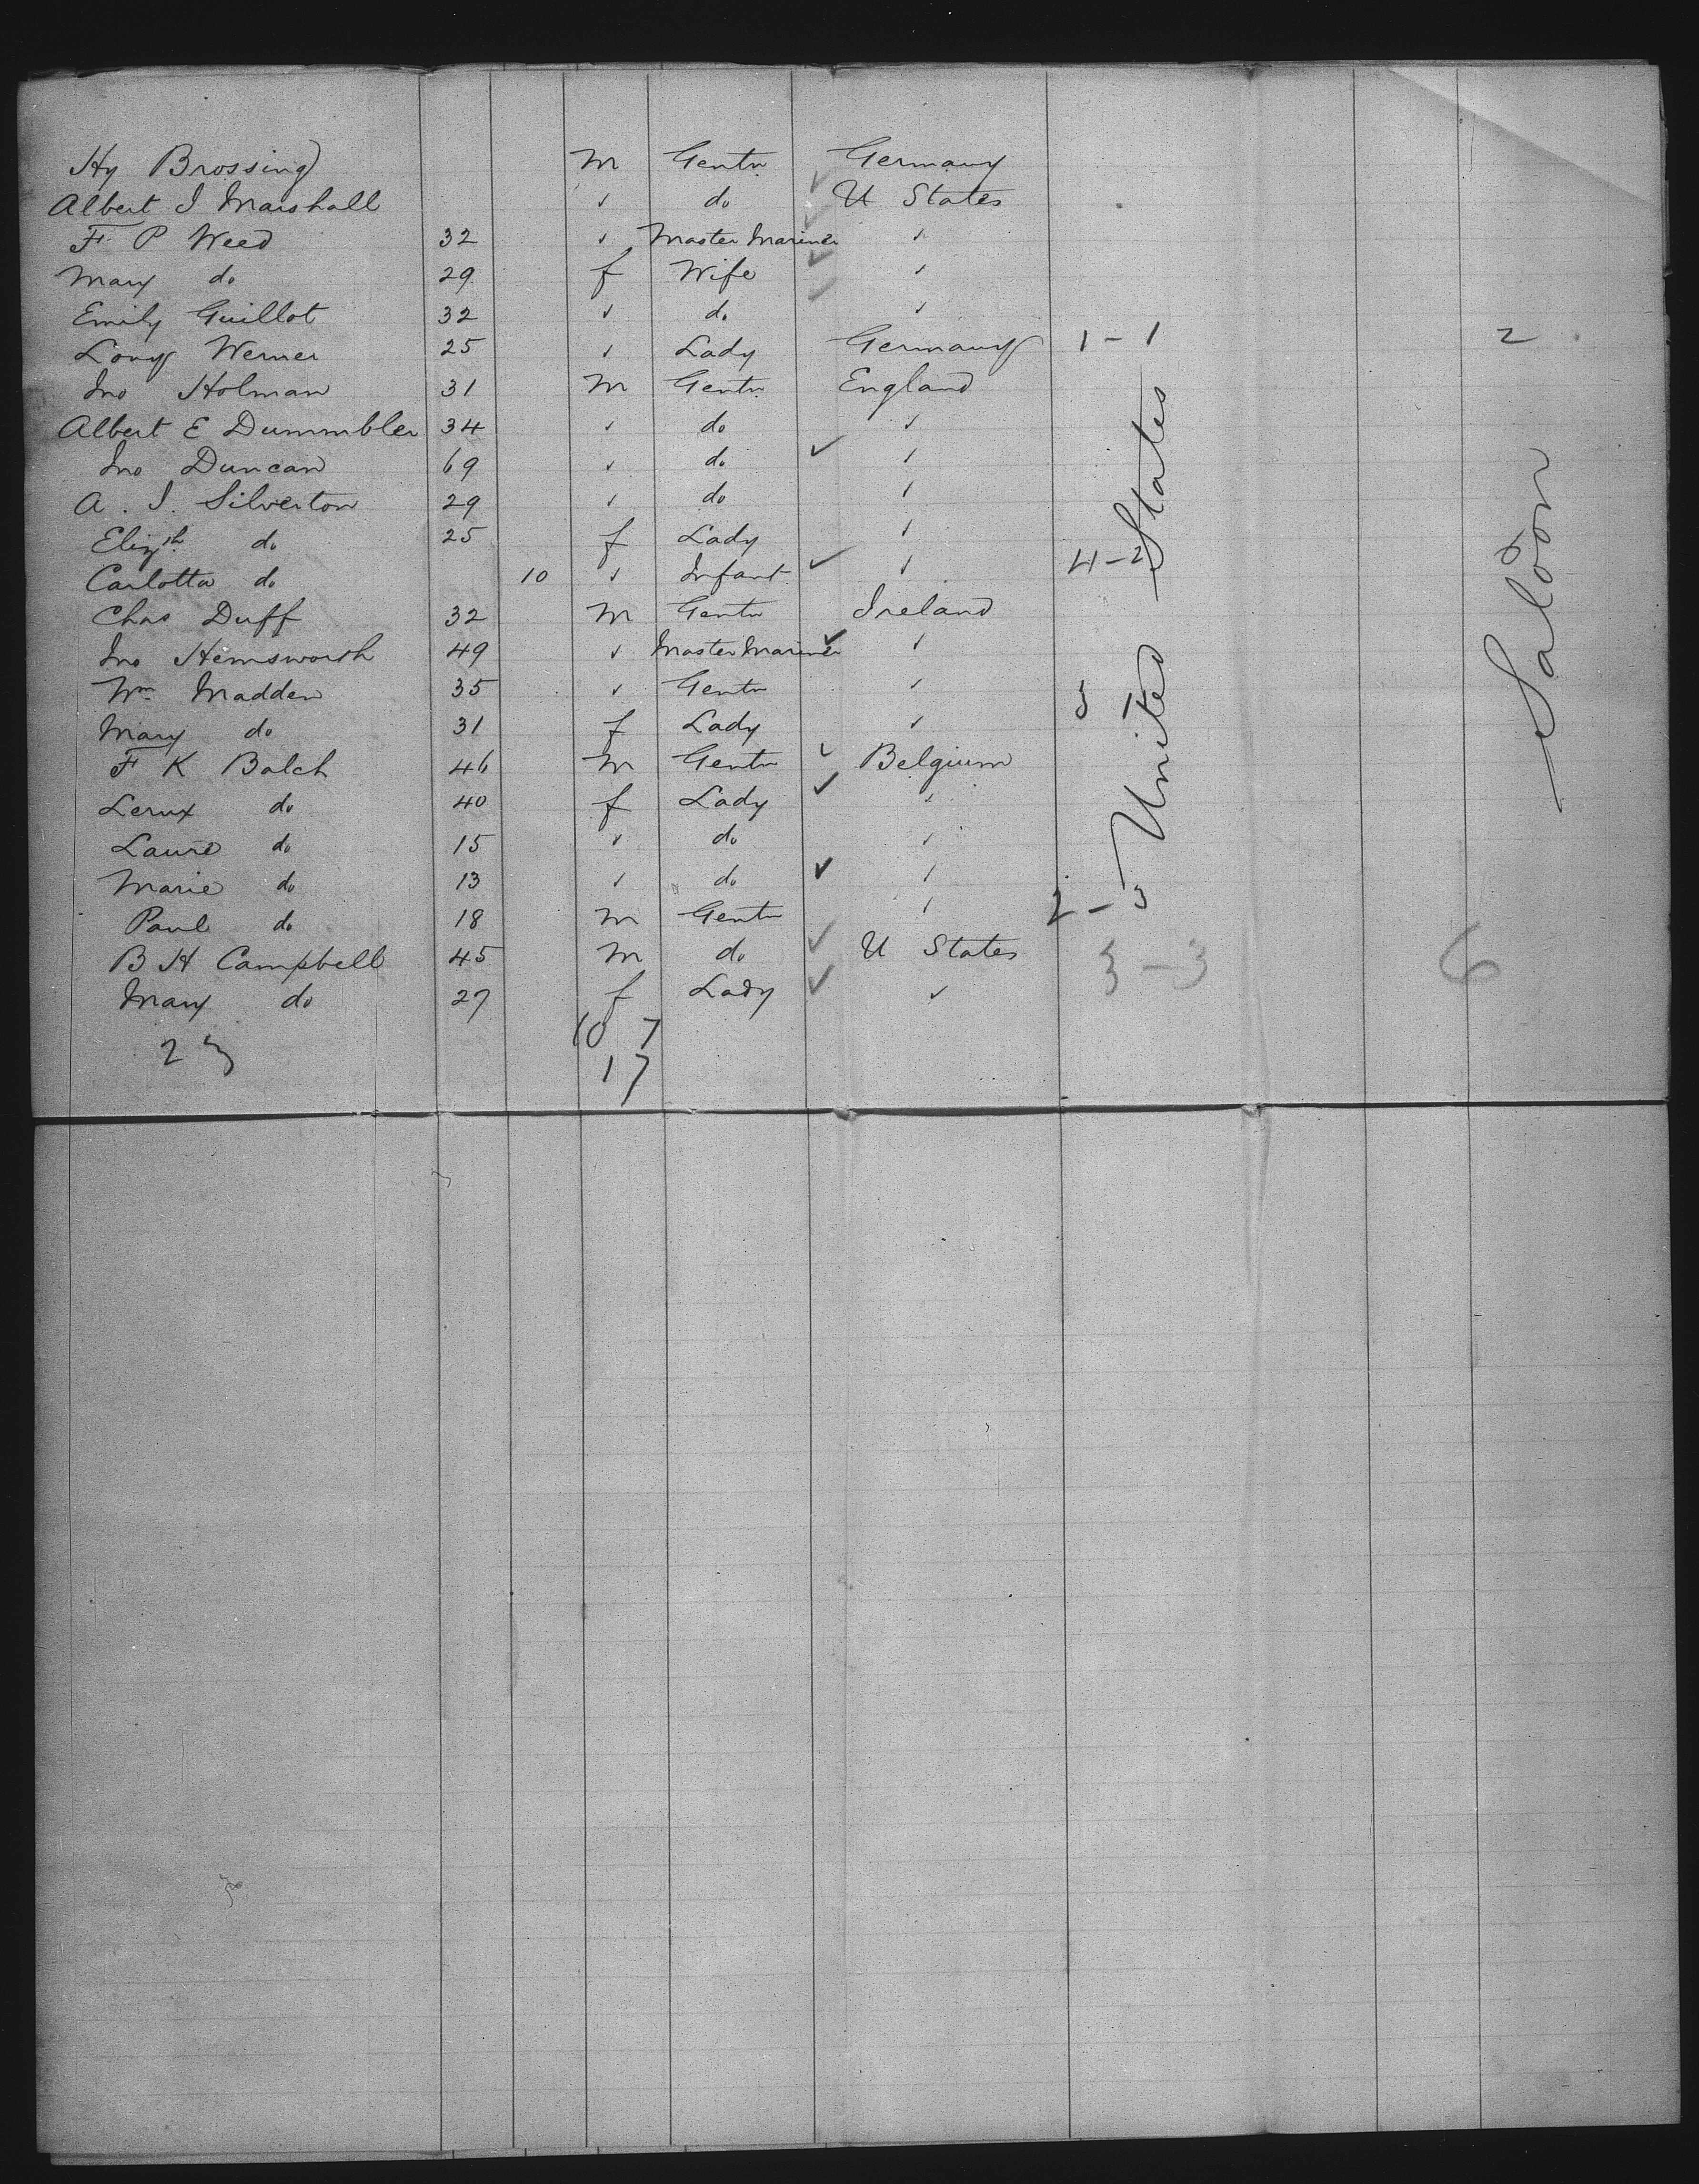 Hy Brossing M Gentn Germany
Albert J Marshall ✓ do U States
F P Weed 32 ✓ Master Mariner ✓
Mary do 29 f Wife ✓
Emily Guillot 32 ✓ do ✓
Long Werner 25 ✓ Lady Germany 1-1 2
Jno Holman 31 M Gentn England
Albert E Dummbler 34 ✓ do ✓
Jno Duncan 69 ✓ do ✓
A. J. Silverton 29 ✓ do ✓
Elizth do 25 f Lady ✓
Carlotta do 10 ✓ Infant ✓ 4-2
Chas Duff 32 M Gentn Ireland
Jno Hemsworth 49 ✓ Master Mariner ✓
Wm Madden 35 ✓ Gentn ✓
Mary do 31 f Lady ✓
F K Balch 46 M Gentn Belgium
do 40 f Lady ✓
Laure do 15 ✓ do ✓
Marie do 13 ✓ do ✓
Paul do 18 M Gentn ✓ 2-3
B H Campbell 45 M do U States 3-3 6
Mary do 27 f Lady ✓
23 10 7
17
United States
Saloon